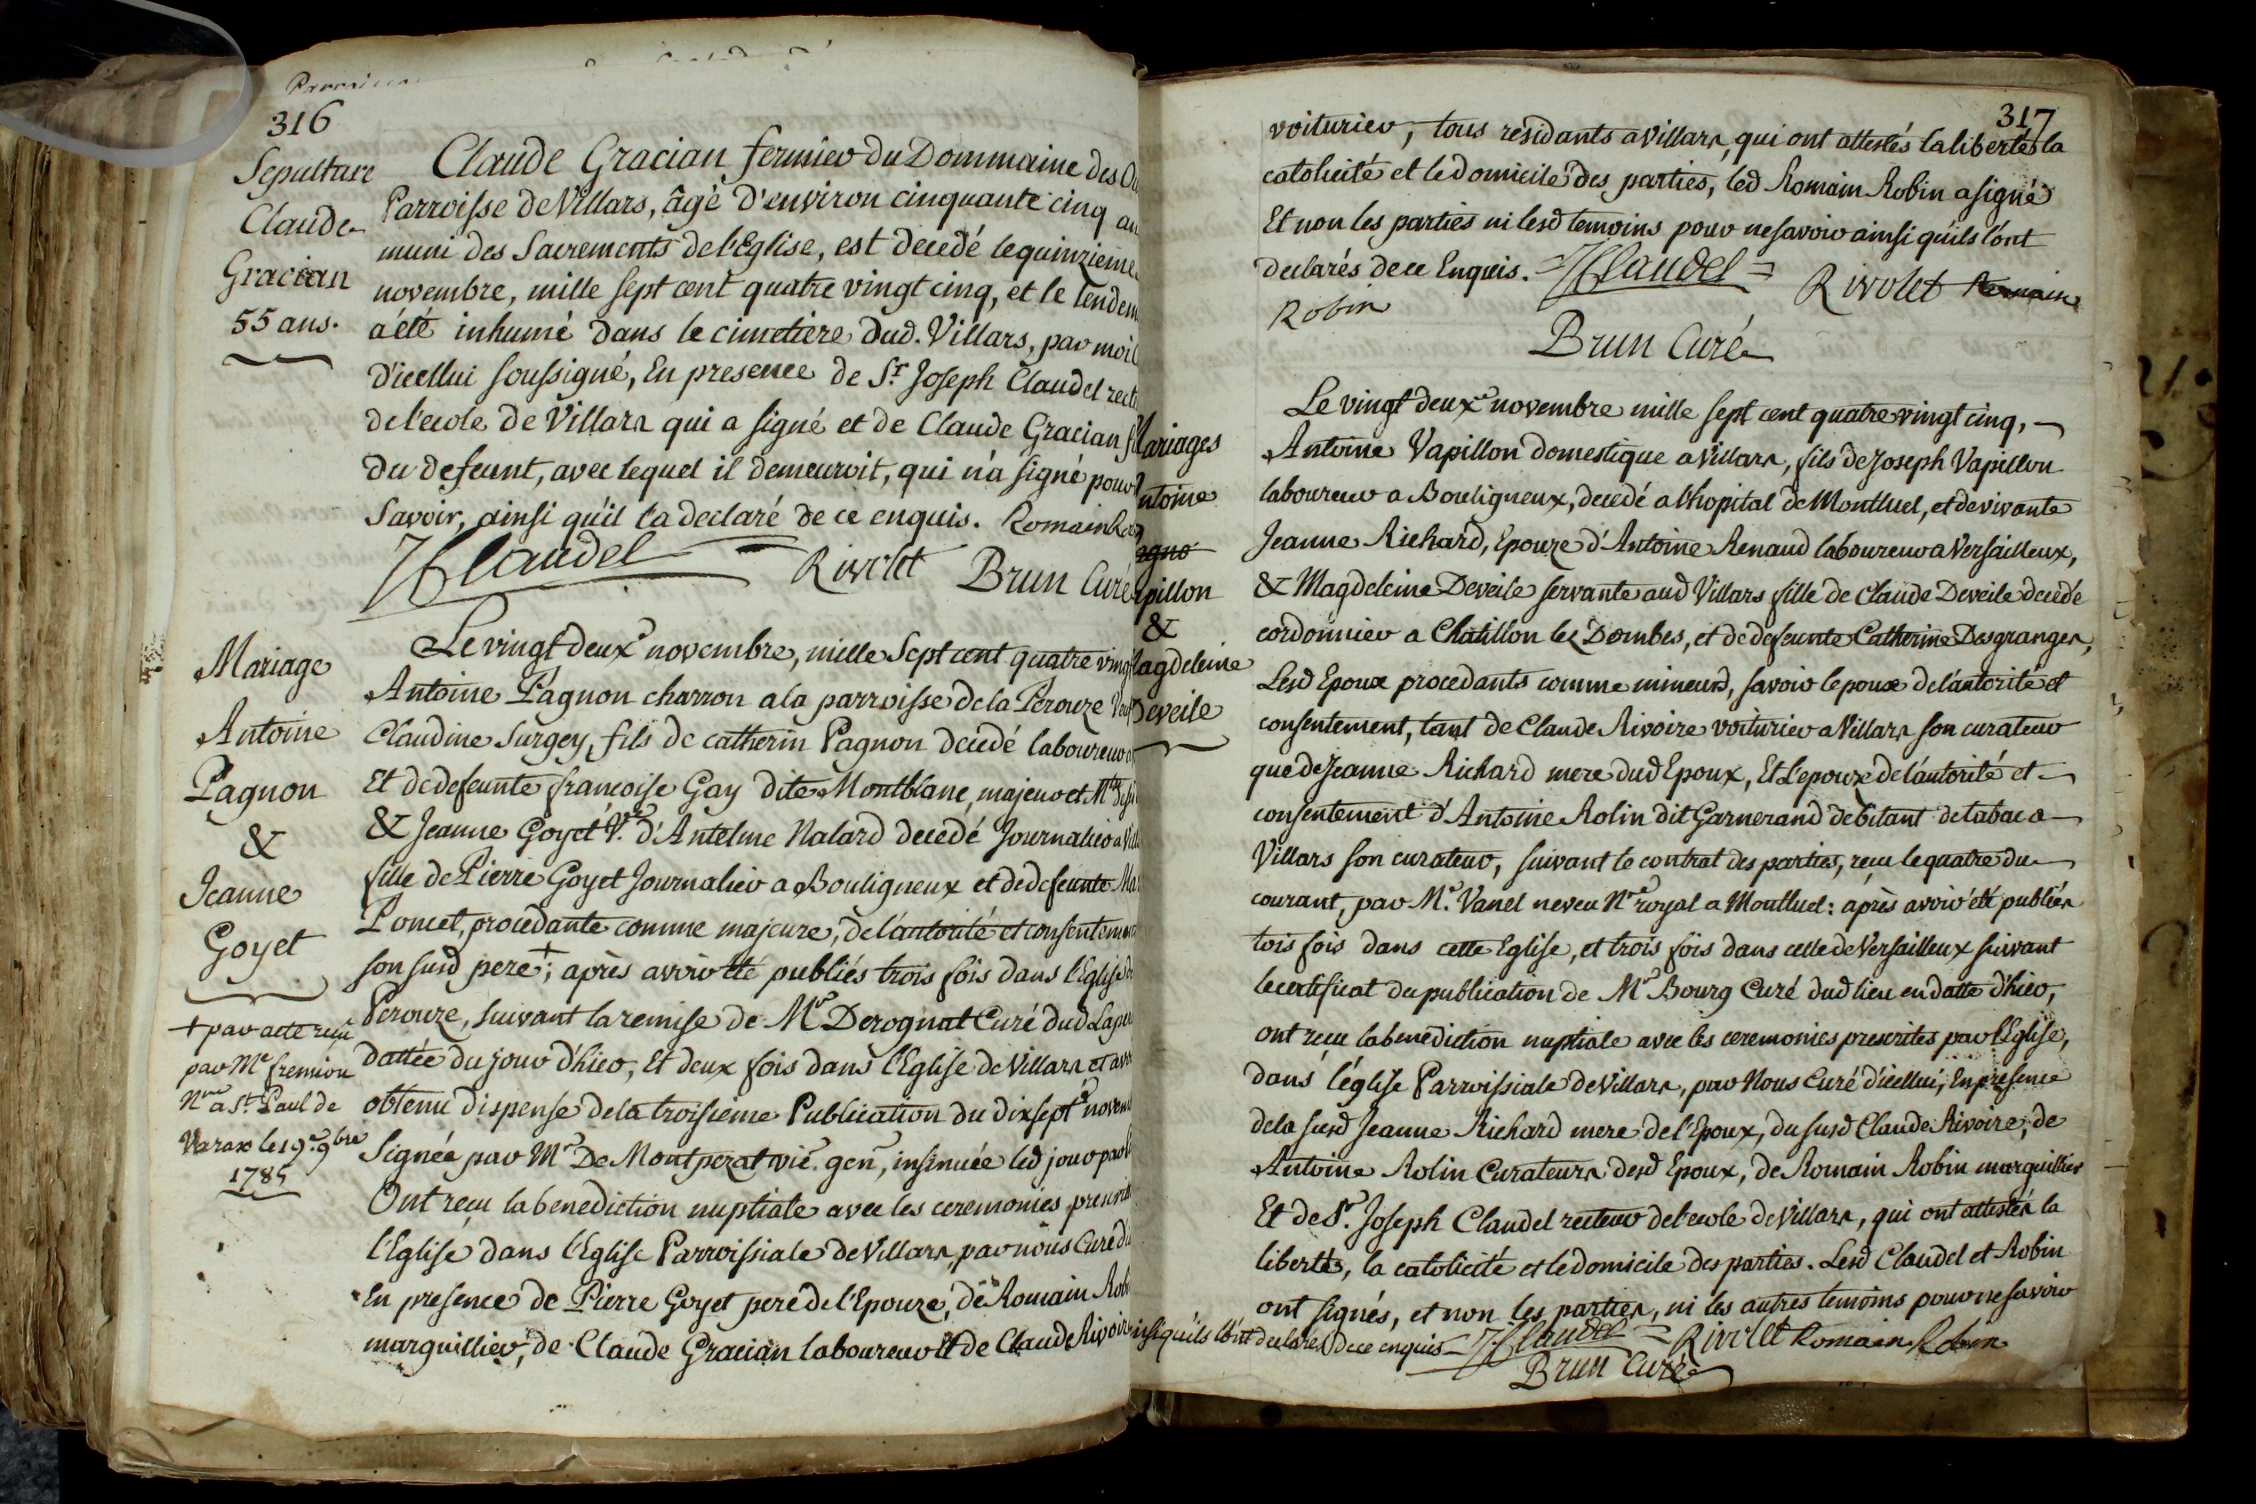 316
Sepulture
Claude
Gracian
55 ans.
Claude Gracian fermier du Dommaine des
Parroisse de Villars, âgé d'environ cinquante cinq
muni des Sacrements de l'Eglise, est decedé le quinzieme
novembre, mille sept cent quatre vingt cinq, et le lendem
a été inhumé dans le cimetiere dud. Villars, par moi
d'icellui soussigné, En presence de Sr. Joseph Claudel rect
de l'ecole de Villars qui a signé et de Claude Gracian
du defeunt, avec lequel il demeuroit, qui n'a signé pour
Savoir, ainsi qu'il l'a declaré de ce enquis. Romain
JClaudel Rivolet Brun Curé
Mariage
Antoine
Pagnon
&
Jeanne
Goyet
Le vingt deuxe novembre, mille Sept cent quatre ving
Antoine Pagnon charron a la parroisse de la Perouze
Claudine Surgey, fils de catherin Pagnon decedé laboureur
Et de defeunte francoise Gay dite Montblanc, majeur et
& Jeanne Goyet Ve. d'Antelme Nalard decedé Journalier a
fille de Pierre Goyet Journalier a Bouligneux et de defeunte
Poncet, procedante comme majeure, de l'autorité et consentemen
son susd pere +; après avoir été publiés trois fois dans l'Eglise
Perouze, suivant la remise de Mr Derognat Curé dud
dattée du jour d'hier, Et deux fois dans l'Eglise de Villars et
obtenu dispense de la troisieme Publication du dix septe novem
Signée par Mr De Montpezat vic. gen, insinuée led jour par
Ont reçu la benediction nuptiale avec les ceremonies
l'Eglise dans l'Eglise Parroissiale de Villars, par nous Curé
En presence de Pierre Goyet pere de l'Epouze, de Romain Rob
marguillier, de Claude Gracian laboureur Et de Claude Rivoire
+ par acte reçu
par Me fremion
Nre a St. Paul de
Varax le 19e. 9bre
1785
317
voiturier, tous residants a Villars, qui ont attestés la libertés la
catolicité et le domicile des parties, led Romain Robin a signé
Et non les parties ni lesd temoins pour ne savoir ainsi qu'ils l'ont
declarés de ce Enquis. JClaudel Rivolet Romain
Robin
Brun Curé
ariages
ntoine
agno
pillon
&
agdeleine
Deveile
Le vingt deuxe novembre mille sept cent quatre vingt cinq,
Antoine Vapillon domestique a Villars, fils de Joseph Vapillon
laboureur a Bouligneux, decedé a l'hopital de Montluel, et de vivante
Jeanne Richard, Epouze d'Antoine Renaud laboureur a Versailleux,
& Magdeleine Deveile servante aud Villars fille de Claude Deveile decedé
cordonnier a Chatillon lez Dombes, et de defeunte Catherine Desgranges,
Lesd Epoux procedants comme mineurs, savoir l'epoux de l'autorité et
consentement, tant de Claude Rivoire voiturier a Villars son curateur
que de Jeanne Richard mere dud Epoux, Et l'epouze de l'autorité et
consentement d'Antoine Rolin dit Garnerand debitant de tabac a
Villars son curateur, suivant le contrat des parties, reçu le quatre du
courant, par Me. Vanel neveu Nre royal a Montluel: après avoir été publiés
tois fois dans cette Eglise, et trois fois dans celle de Versailleux suivant
le certificat du publication de Mr Bourg Curé dud lieu en datte d'hier,
ont reçu la benediction nuptiale avec les ceremonies prescrites par l'Eglise,
dans l'église Parroissiale de Villars, par Nous Curé d'icellui, En presence
de la susd Jeanne Richard mere de l'Epoux, du susd Claude Rivoire, de
Antoine Rolin Curateurs desd Epoux, de Romain Robin marguillier
Et de Sr. Joseph Claudel recteur de l'ecole de Villars, qui ont attestés la
libertés, la catolicité et le domicile des parties. Lesd Claudel et Robin
ont signés, et non les parties, ni les autres temoins pour ne savoir
insi qu'ils l'ont declarés de ce enquis JClaudel Rivolet Romain Robin
Brun Curé